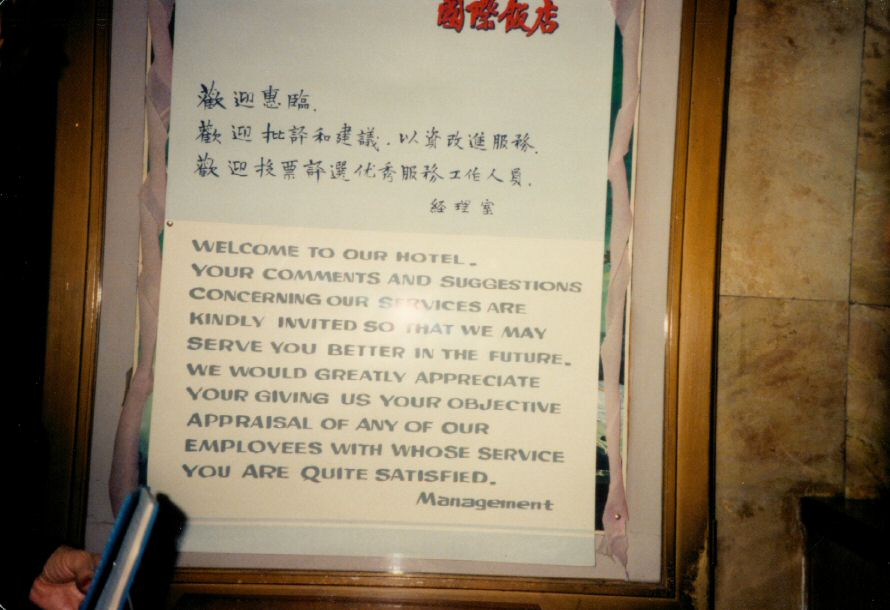 國際飯店
歡迎惠臨.
歡迎批評和建議.以資改進服務.
歡迎投票評選优秀服務工作人員.
経理室
WELCOME TO OUR HOTEL.
YOUR COMMENTS AND SUGGESTIONS
CONCERNING OUR SERVICES ARE
KINDLY INVITED SO THAT WE MAY
SERVE YOU BETTER IN THE FUTURE.
WE WOULD GREATLY APPRECIATE
YOUR GIVING US YOUR OBJECTIVE
APPRAISAL OF ANY OF OUR
EMPLOYEES WITH WHOSE SERVICE
YOU ARE QUITE SATISFIED.
Management